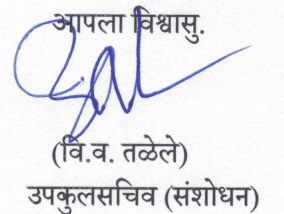 आपला विश्वासु.
(वि.व. तळेले)
उपकुलसचिव (संशोधन)